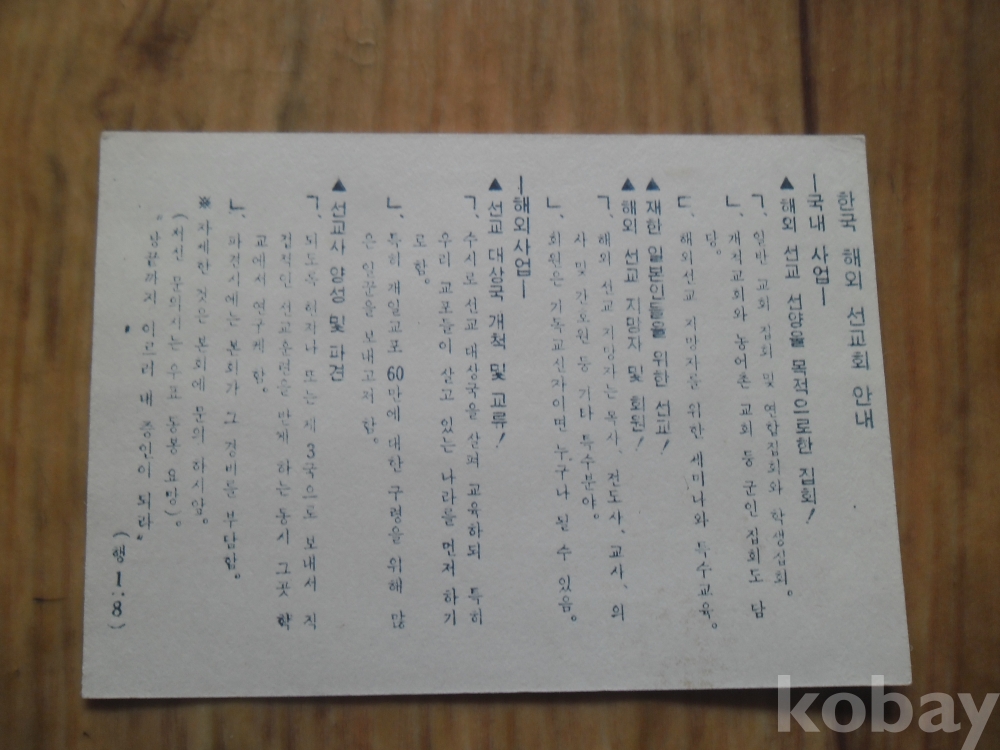 한국 해외 선교회 안내
—국내 사업—
▲ 해외 선교 선양을 목적으로한 집회!
ㄱ, 일반 교회 집회 및 연합집회와 학생집회。
ㄴ, 재직교회와 농어촌 교회 등 군인 집회도 담
당。
ㄷ, 해외선교 지망자를 위한 세미나와 특수교육。
▲ 재한 일본인들을 위한 선교!
▲ 해외 선교 지망자 및 회원!
ㄱ, 해외 선교 지망자는 목사, 전도사, 교사, 의
사 및 간호원 등 기타 특수분야。
ㄴ, 회원은 기독교신자이면 누구나 될 수 있음。
—해외사업—
▲ 선교 대상국 개척 및 교류!
ㄱ, 수시로 선교 대상국을 살펴 교육하되 특히
우리 교포들이 살고 있는 나라를 먼저 하기
로 함。
ㄴ, 특히 재일교포 60만에 대한 구령을 위해 많
은 일꾼을 보내고저 함。
▲ 선교사 양성 및 파견
ㄱ, 되도록 현지나 또는 제3국으로 보내서 직
접적인 선교훈련을 받게 하는 동시 그곳 학
교에서 연구케 함。
ㄴ, 파견시에는 본회가 그 경비를 부담함。
※ 자세한 것은 본회에 문의 하시압。
(서신 문의시는 우표 동봉 요망)。
땅끝까지 이르러 내 증인이 되라。
(행 1:8)
kobay